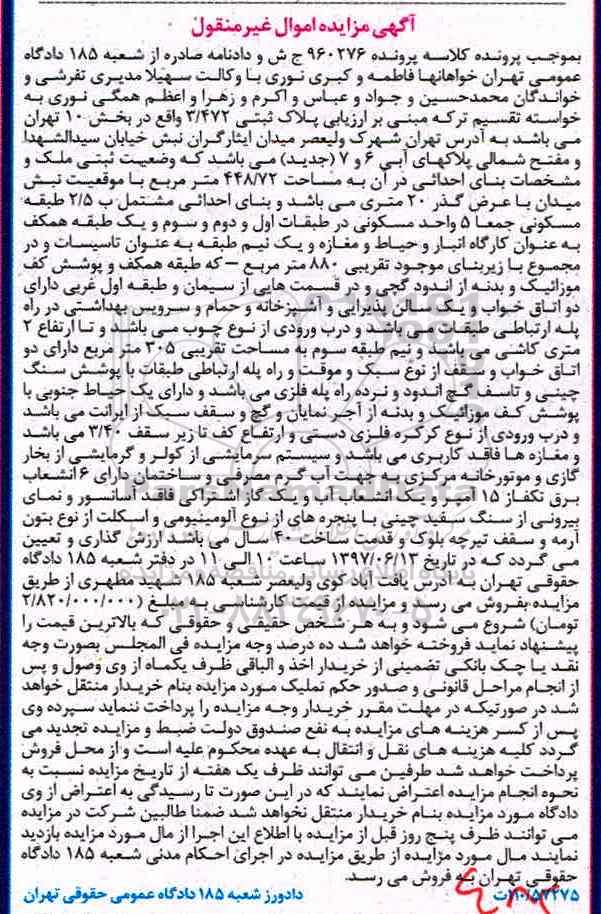 آگهی مزایده اموال غیر منقول
بموجب پرونده کلاسه پرونده ۹۶۰۲۷۶ ج ش و دادنامه صادره از شعبه ۱۸۵ دادگاه
عمومی تهران خواهانها فاطمه و کبری نوری با وکالت سهیلا مدیری تفرشی و
خواندگان محمدحسین و جواد و عباس و اکرم و زهرا و اعظم همگی نوری به
خواسته تقسیم ترکه مبنی بر ارزیابی پلاک ثبتی ۳/۴۷۲ واقع در بخش ۱۰ تهران
می باشد به آدرس تهران شهرک ولیعصر میدان ایثارگران نبش خیابان سیدالشهدا
و مفتح شمالی پلاکهای آبی ۶ و ۷ (جدید) می باشد که وضعیت ثبتی ملک و
مشخصات بنای احداثی در آن به مساحت ۴۴۸/۷۲ متر مربع با موقعیت نبش
میدان با عرض گذر ۲۰ متری می باشد و بنای احداثی مشتمل ب ۲/۵ طبقه
مسکونی جمعا ۵ واحد مسکونی در طبقات اول و دوم و سوم و یک طبقه همکف
به عنوان کارگاه انبار و حیاط و مغازه و یک نیم طبقه به عنوان تاسیسات و در
مجموع با زیربنای موجود تقریبی ۸۸۰ متر مربع – که طبقه همکف و پوشش کف
موزائیک و بدنه از اندود گچی و در قسمت هایی از سیمان و طبقه اول غربی دارای
دو اتاق خواب و یک سالن پذیرایی و آشپزخانه و حمام و سرویس بهداشتی در راه
پله ارتباطی طبقات می باشد و درب ورودی از نوع چوب می باشد و تا ارتفاع ۲
متری کاشی می باشد و نیم طبقه سوم به مساحت تقریبی ۳۰۵ متر مربع دارای دو
اتاق خواب و سقف از نوع سبک و موقت و راه پله ارتباطی طبقات با پوشش سنگ
چینی و تاسف گچ اندود و نرده راه پله فلزی می باشد و دارای یک حیاط جنوبی با
پوشش کف موزائیک و بدنه از آجر نمایان و گچ و سقف سبک از ایرانت می باشد
و درب ورودی از نوع کرکره فلزی دستی و ارتفاع کف تا زیر سقف ۳/۴۰ می باشد
و مغازه ها فاقد کاربری می باشد و سیستم سرمایشی از کولر و گرمایشی از بخار
گازی و موتورخانه مرکزی با جهت آب گرم مصرفی و ساختمان دارای ۶ انشعاب
برق تکفاز ۱۵ آمپر و یک انشعاب آب و یک گاز اشتراکی فاقد آسانسور و نمای
بیرونی از سنگ سفید چینی با پنجره های از نوع آلومینیومی و اسکلت از نوع بتون
آرمه و سقف تیرچه بلوک و قدمت ساخت ۴۰ سال می باشد ارزش گذاری و تعیین
می گردد که در تاریخ ۱۳۹۷/۰۶/۱۳ ساعت ۱۰ الی ۱۱ در دفتر شعبه ۱۸۵ دادگاه
حقوقی تهران به آدرس یافت آباد کوی ولیعصر شعبه ۱۸۵ شهید مطهری از طریق
مزایده بفروش می رسد و مزایده از قیمت کارشناسی به مبلغ (۲/۸۲۰/۰۰۰/۰۰۰
تومان) شروع می شود و به هر شخص حقیقی و حقوقی که بالاترین قیمت را
پیشنهاد نماید فروخته خواهد شد ده درصد وجه مزایده فی المجلس بصورت وجه
نقد یا چک بانکی تضمینی از خریدار اخذ و الباقی ظرف یکماه از وی وصول و پس
از انجام مراحل قانونی و صدور حکم تملیک مورد مزایده بنام خریدار منتقل خواهد
شد در صورتیکه در مهلت مقرر خریدار وجه مزایده را پرداخت ننماید سپرده وی
پس از کسر هزینه های مزایده به نفع صندوق دولت ضبط و مزایده تجدید می
گردد کلیه هزینه های نقل و انتقال به عهده محکوم علیه است و از محل فروش
پرداخت خواهد شد طرفین می توانند ظرف یک هفته از تاریخ مزایده نسبت به
نحوه انجام مزایده اعتراض نمایند که در این صورت تا رسیدگی به اعتراض از وی
دادگاه مورد مزایده بنام خریدار منتقل نخواهد شد ضمنا طالبین شرکت در مزایده
می توانند ظرف پنج روز قبل از مزایده با اطلاع این اجرا از مال مورد مزایده بازدید
نمایند مال مورد مزایده از طریق مزایده در اجرای احکام مدنی شعبه ۱۸۵ دادگاه
حقوقی تهران به فروش می رسد.
دادورز شعبه ۱۸۵ دادگاه عمومی حقوقی تهران